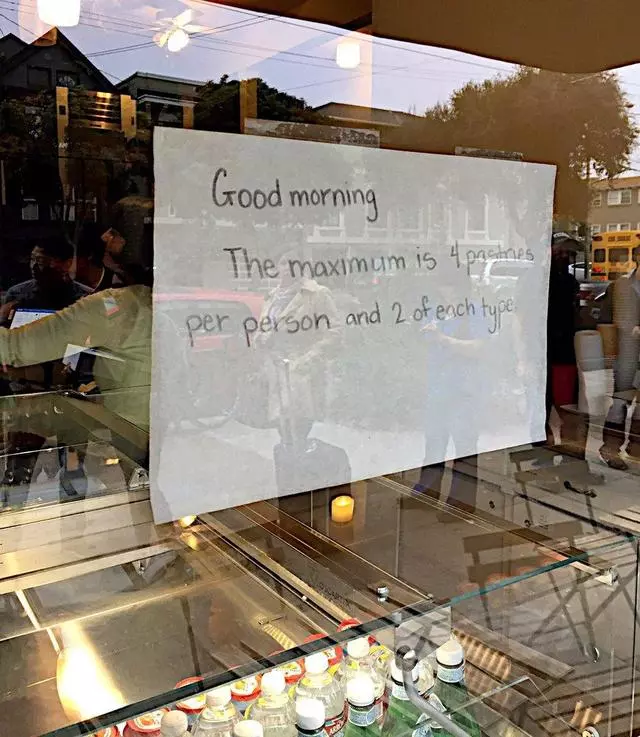 Good morning
The maximum is 4 pastries
per person and 2 of each type.